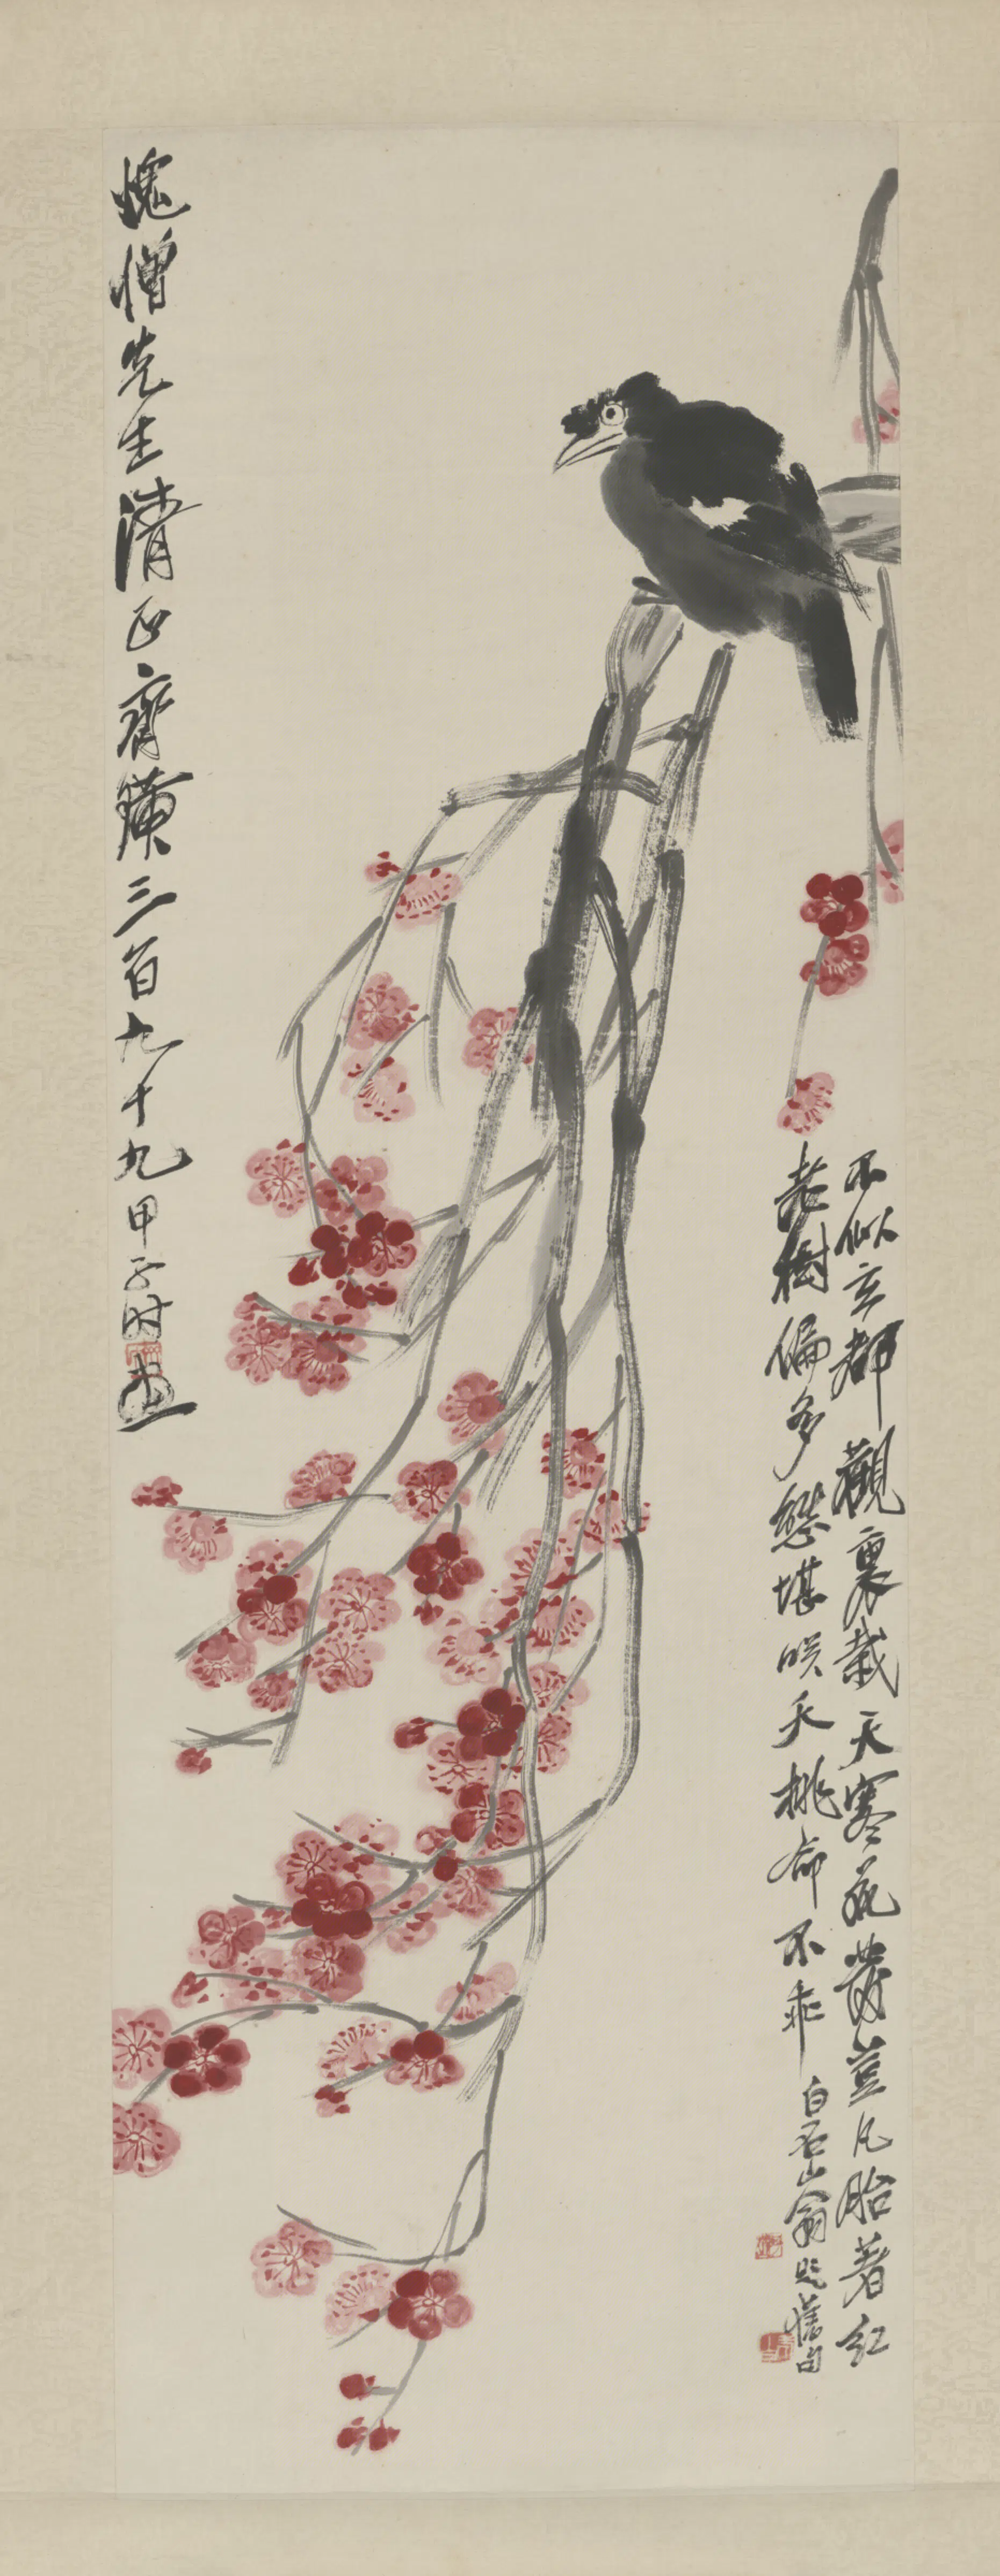 不似玄都觀裏栽天寒花發豈凡胎著紅
老樹偏多態堪咲夭桃命不乖 白石山翁題舊句
愧僧先生清正齊璜三百九十九甲子時畫